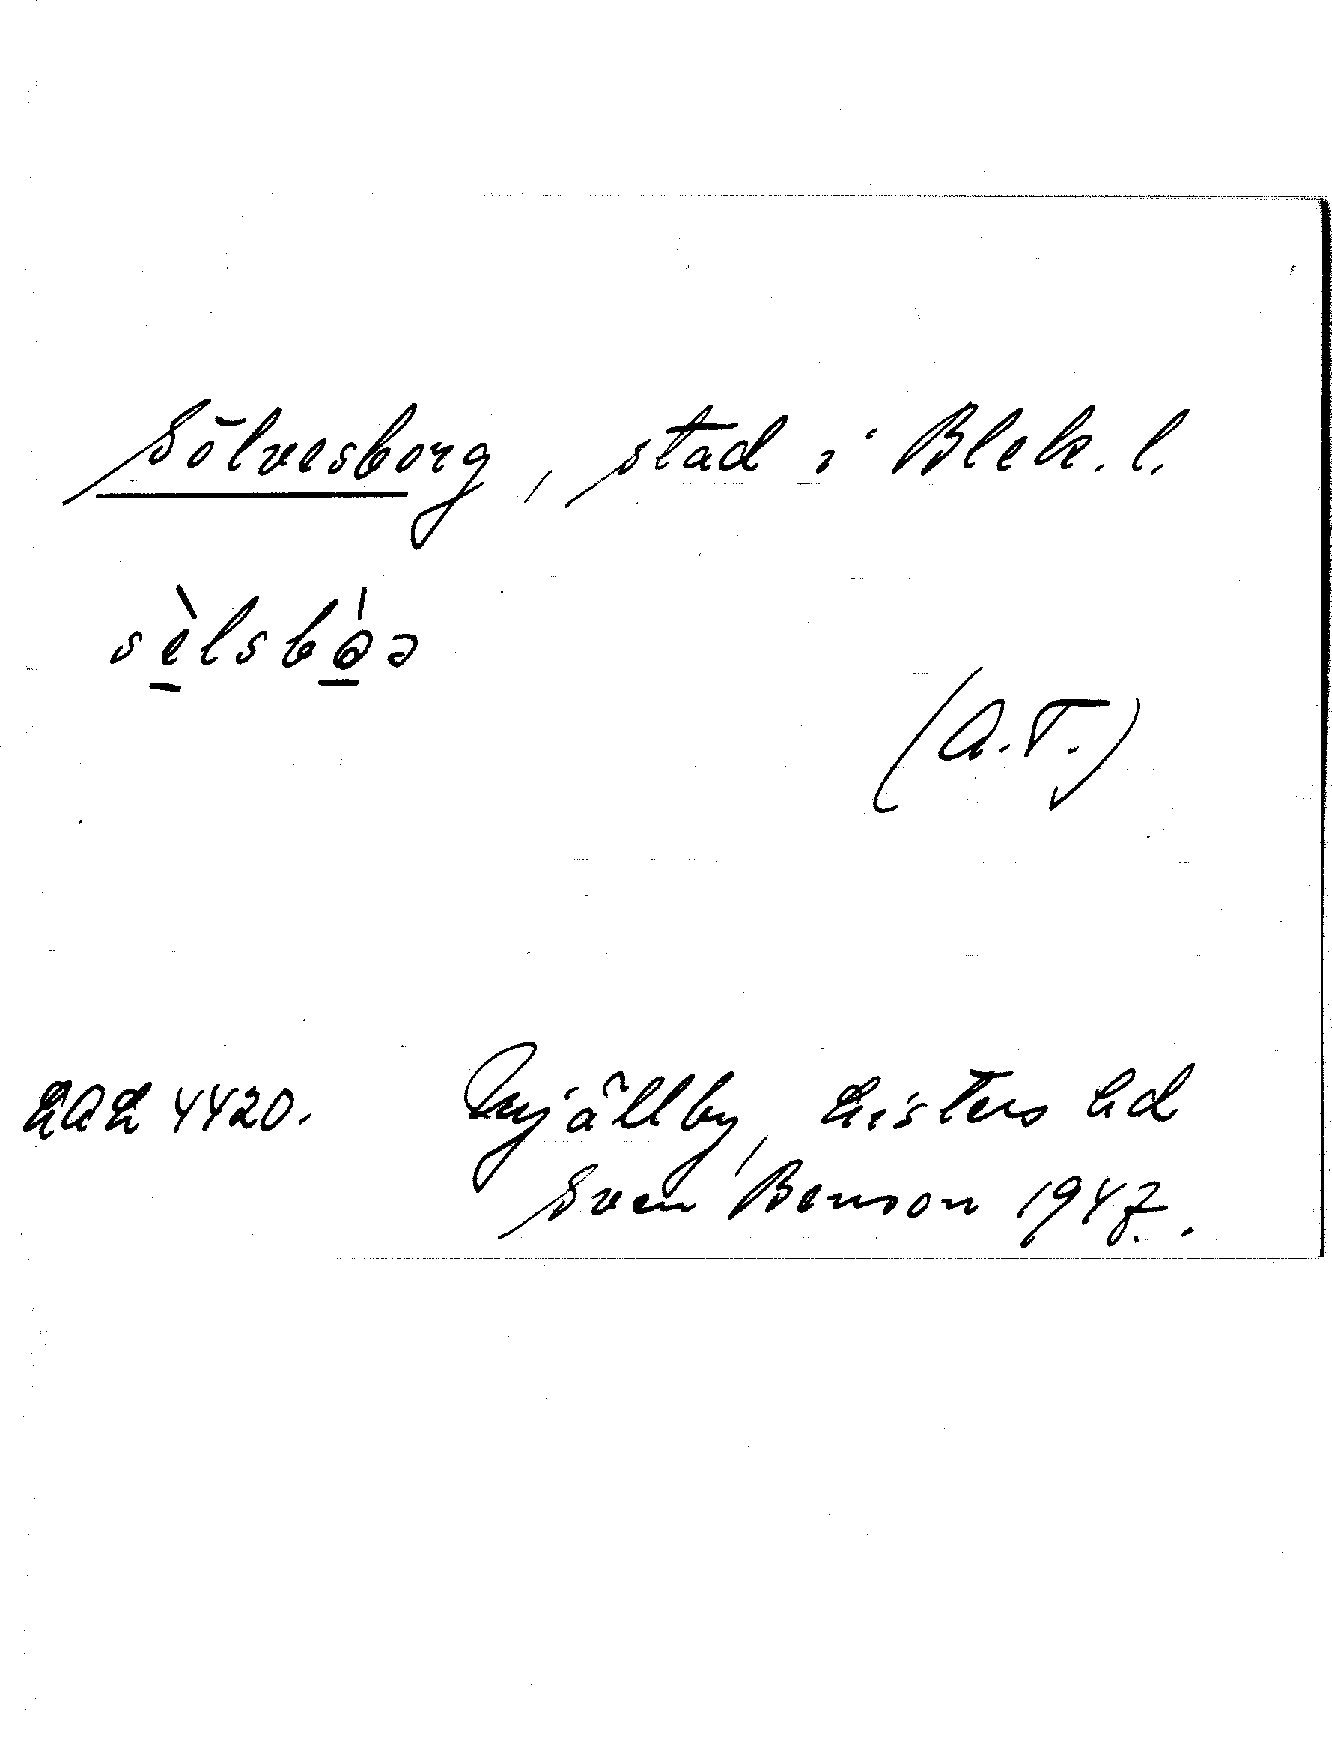 Sölvesborg, stad i Blek. l.
sèlsbóə
(A.T.)
LAL 4420. Mjällby, Listers hd
Sven Benson 1947.